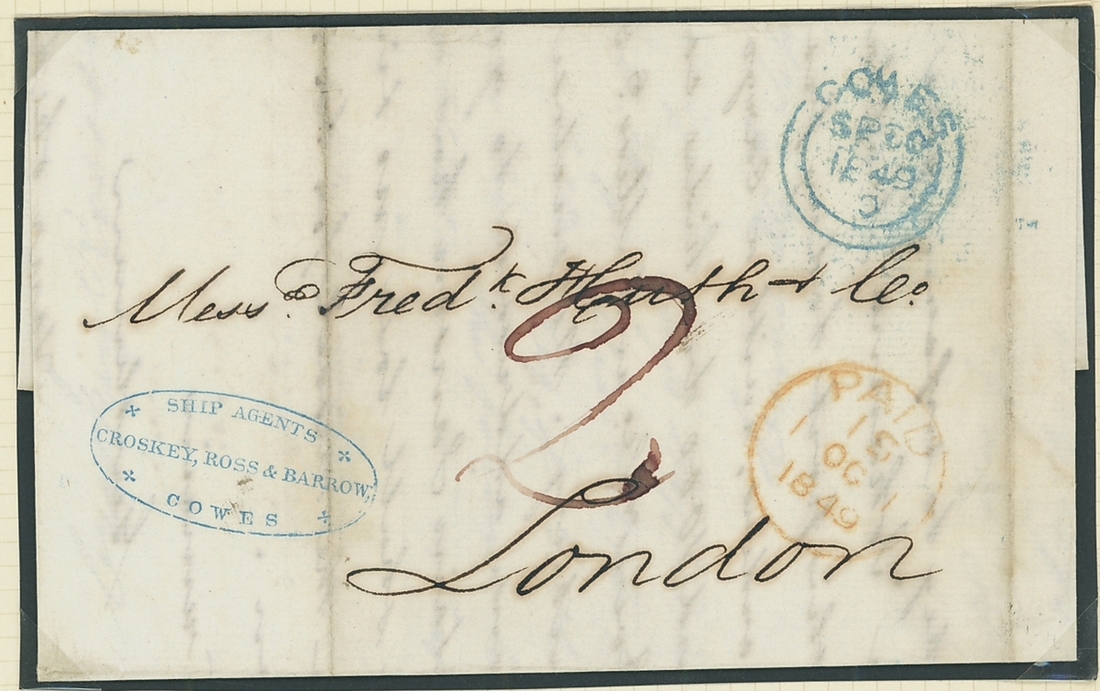 COWES
SP 30
1849
Mess.rs Fred.k Huth & Co.
2
SHIP AGENTS
CROSKEY, ROSS & BARROW,
COWES
PAID
OC 1
1849
London